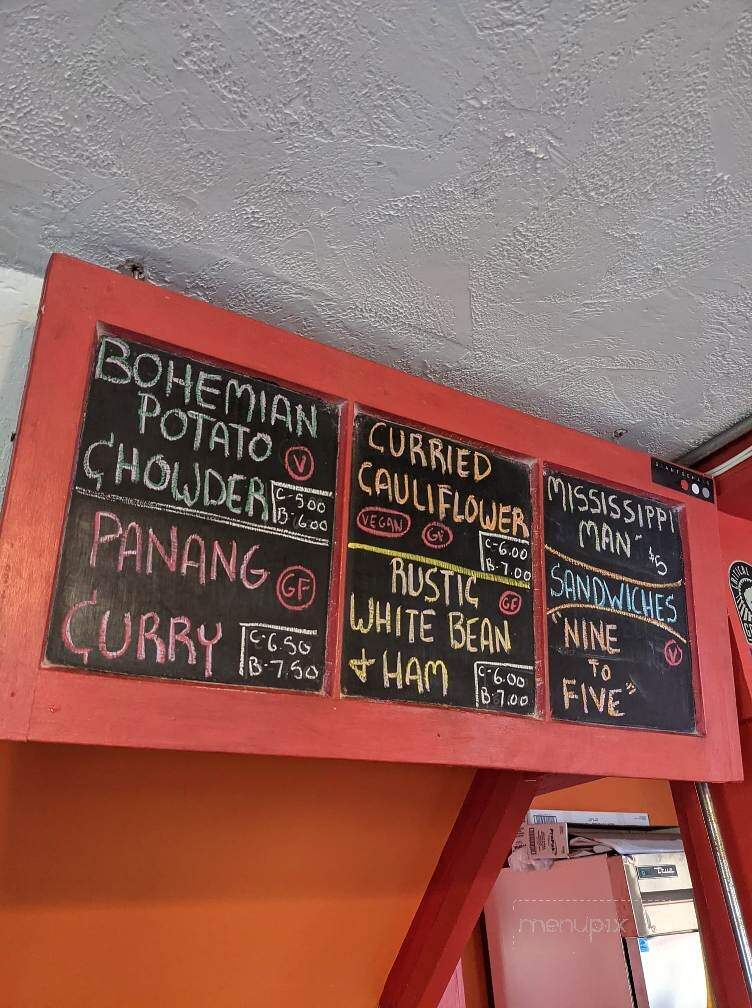 BOHEMIAN
POTATO
CHOWDER
V
C-5.00
B-6.00
PANANG
CURRY
GF
C-6.50
B-7.50
CURRIED
CAULIFLOWER
VEGAN GF
C-6.00
B-7.00
RUSTIC
WHITE BEAN
+ HAM
GF
C-6.00
B-7.00
MISSISSIPPI
MAN" $5
SANDWICHES
"NINE
TO
FIVE"
V
True
menupix